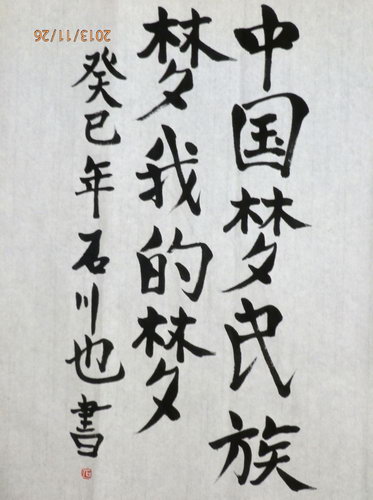 中国梦民族
梦我的梦
癸巳年石川也書
2013/11/26